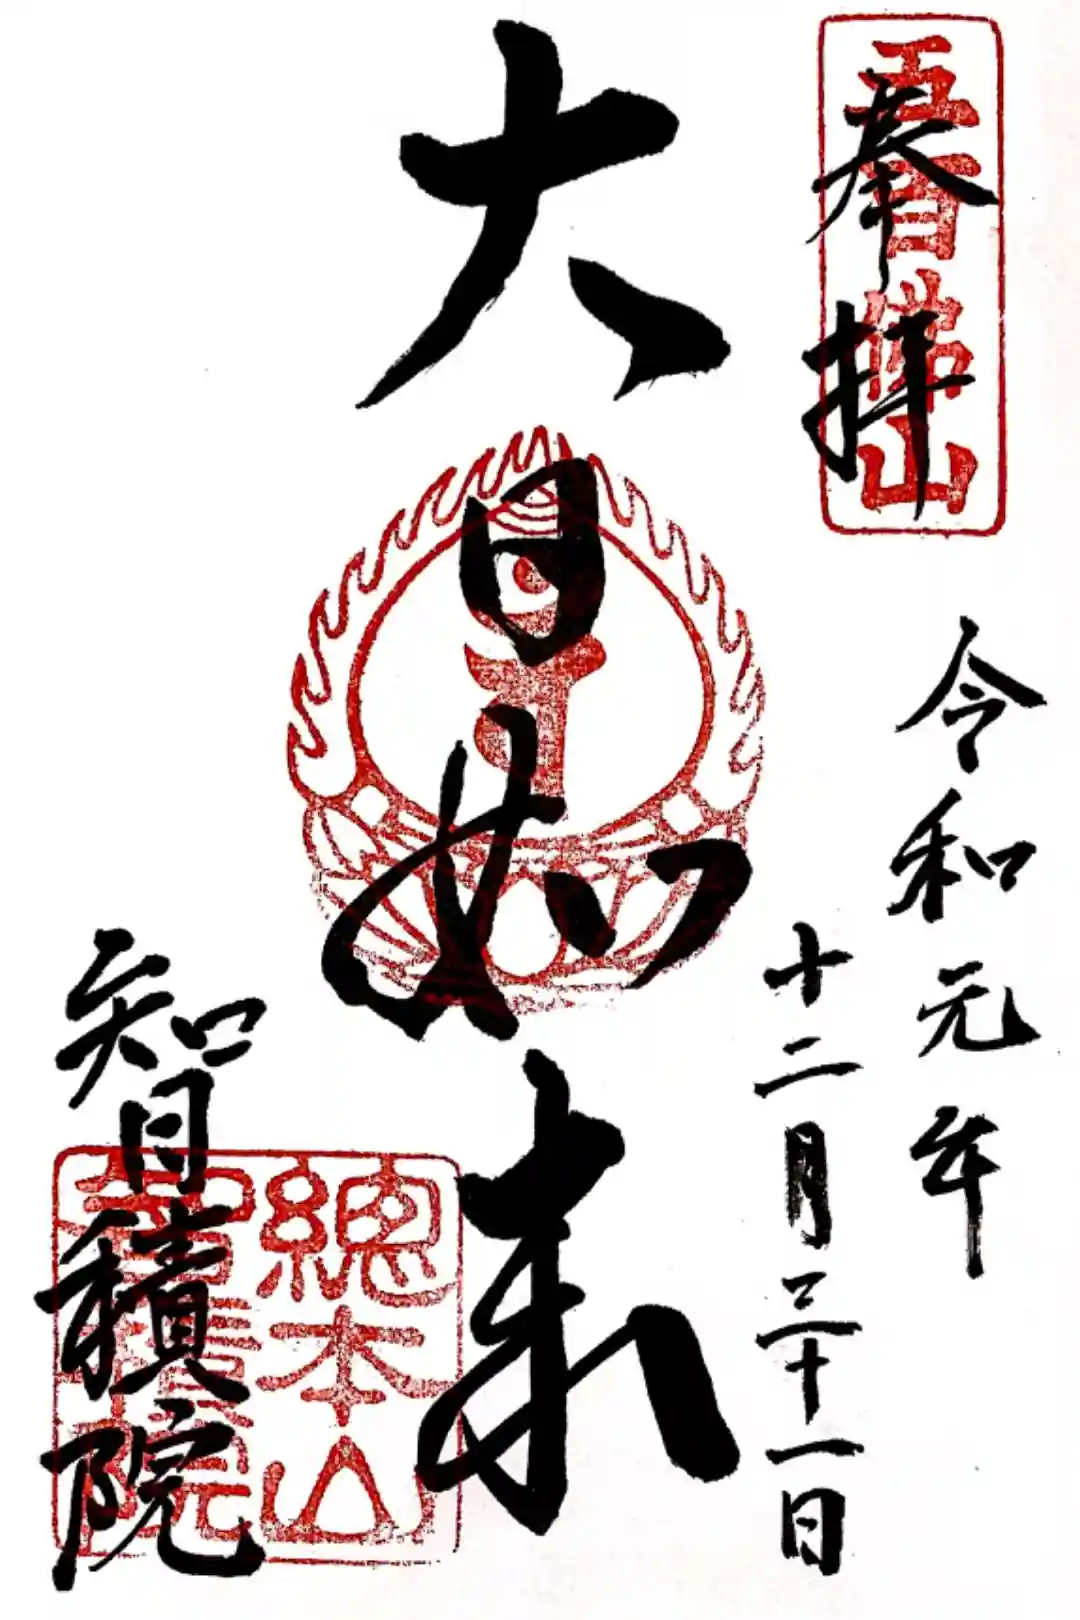 五百佛山
奉拝
令和元年
十二月三十一日
大日如来
總本山
智積院
智積院